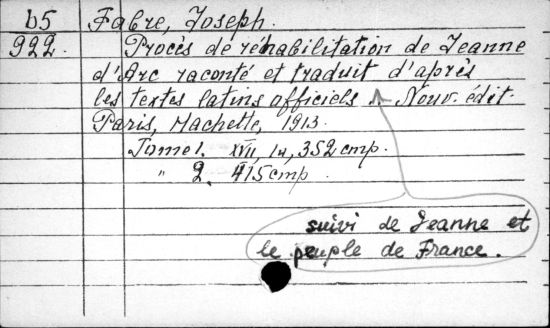 b5 Fabre, Joseph.
922. Procès de réhabilitation de Jeanne
d'Arc raconté et traduit d'après
les textes latins officiels. Nouv. édit.
Paris, Hachette, 1913.
Tome 1. XVII, 352 cmp.
" 2. 415 cmp.
suivi de Jeanne et
le peuple de France.